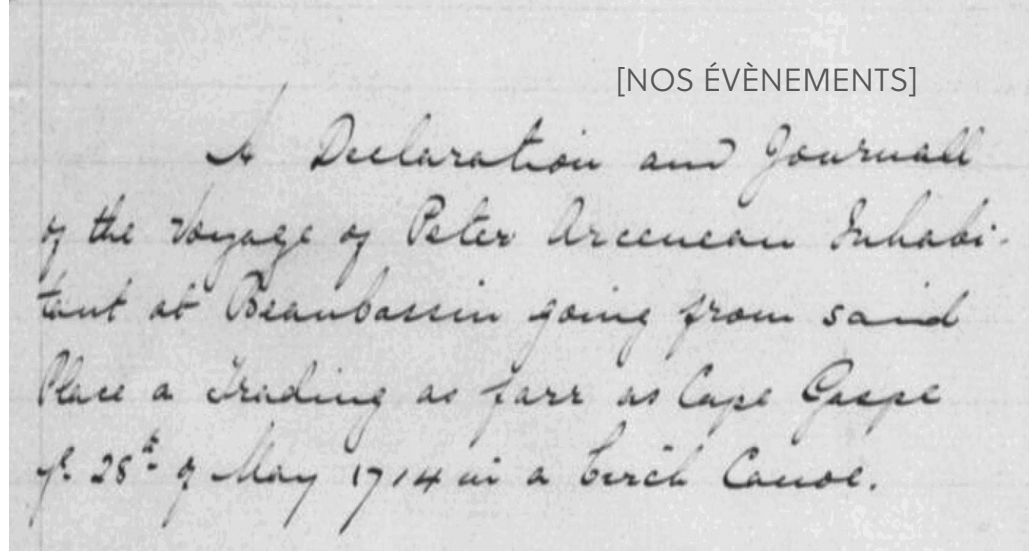 [NOS ÉVÈNEMENTS]
A Declaration and Journall
of the Voyage of Peter Arceneau Inhabi-
tant at Beaubassin going from said
Place a Trading as farr as Cape Gaspe
ye. 28th of May 1714 in a birch Canoe.